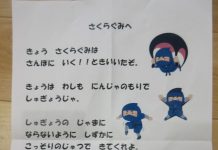 さくらぐみへ
きょう さくらぐみは
さんぽに いく！！ときいいたぞ。
きょうは わしも にんじゃのもりで
しゅぎょうじゃ。
しゅぎょうの じゃまに
ならないように しずかに
こっそりのじゅつで きてくれよ。